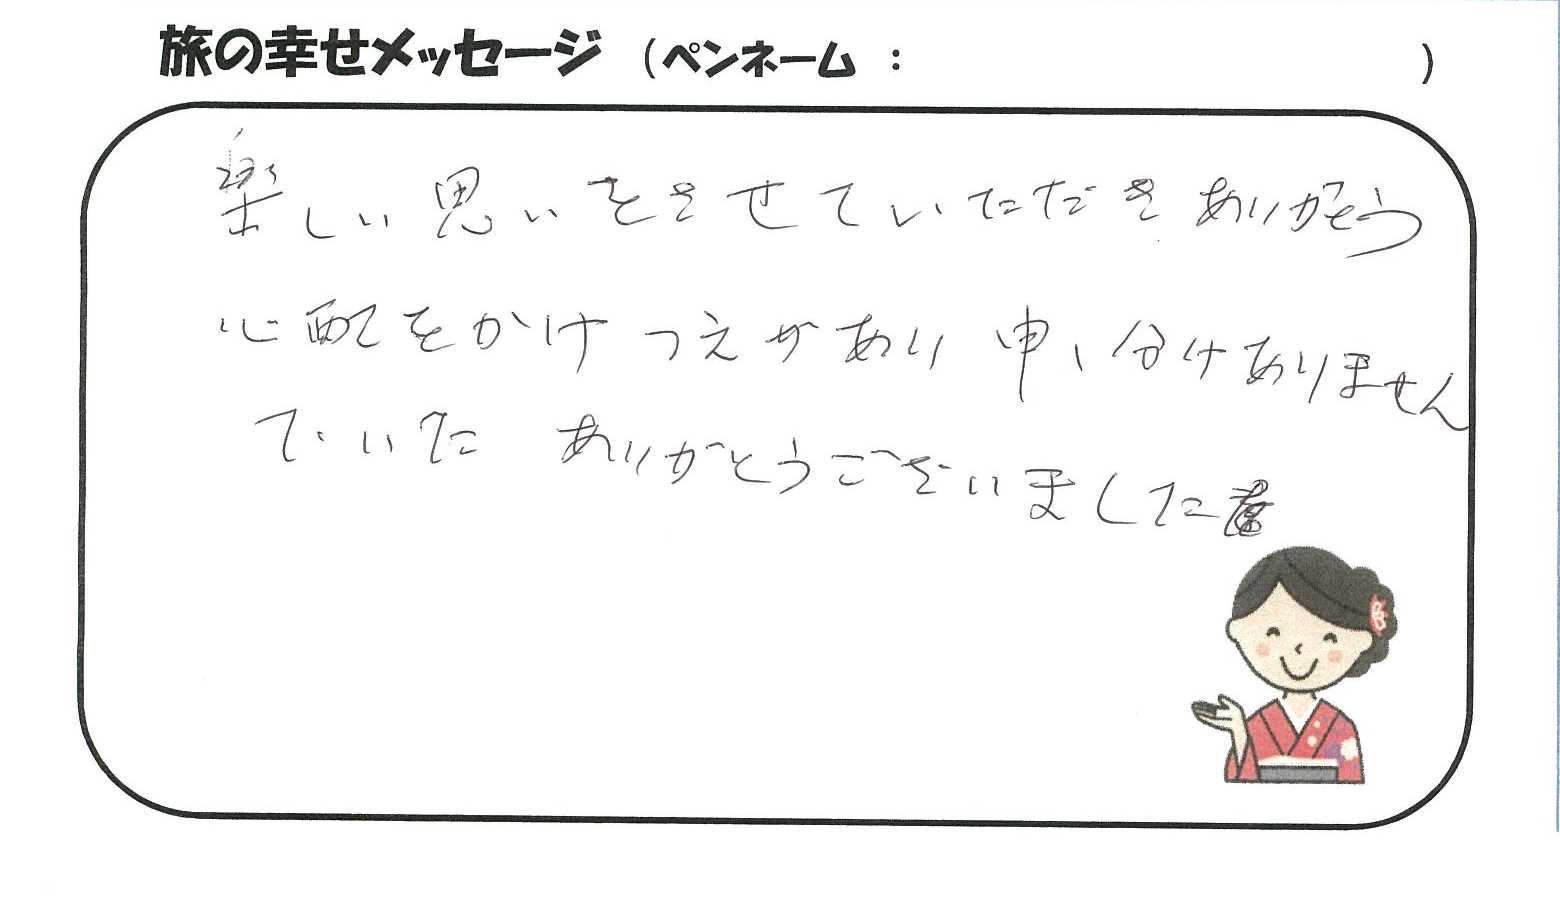 旅の幸せメッセージ (ペンネーム : )
楽しい思いをさせていただきありがとう
心配をかけつえがあり申し分けありません
でいた ありがとうございました